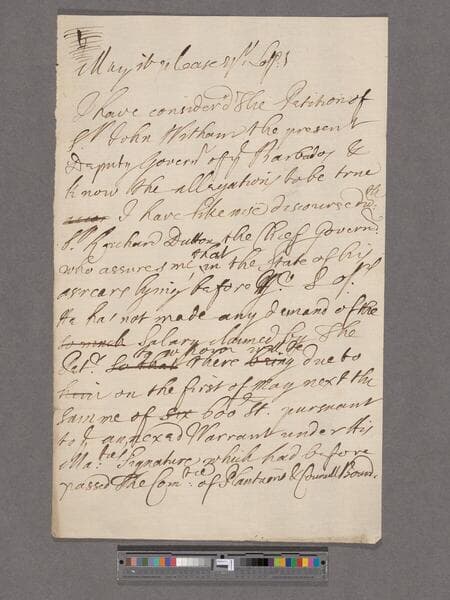 May it please yr. Lopps
I have considered the Petition of
Sr. John Witham the present
Deputy Governr. of ye Barbados &
know the allegations to be true
I have likewise discoursed wth.
Sr. Richard Dutton the Cheif Governr.
who assures me that in the state of his
arrears lying before yr. Lopps
He has not made any demand of the
so much Salary claimed by the
Petr. so that to whom there being will be due to
him on the first of May next the
summe of six 600 St. pursuant
to ye annexed Warrant under His
Matys. Signature which had before
passed the Comtee. of Plantations & Councill Board.